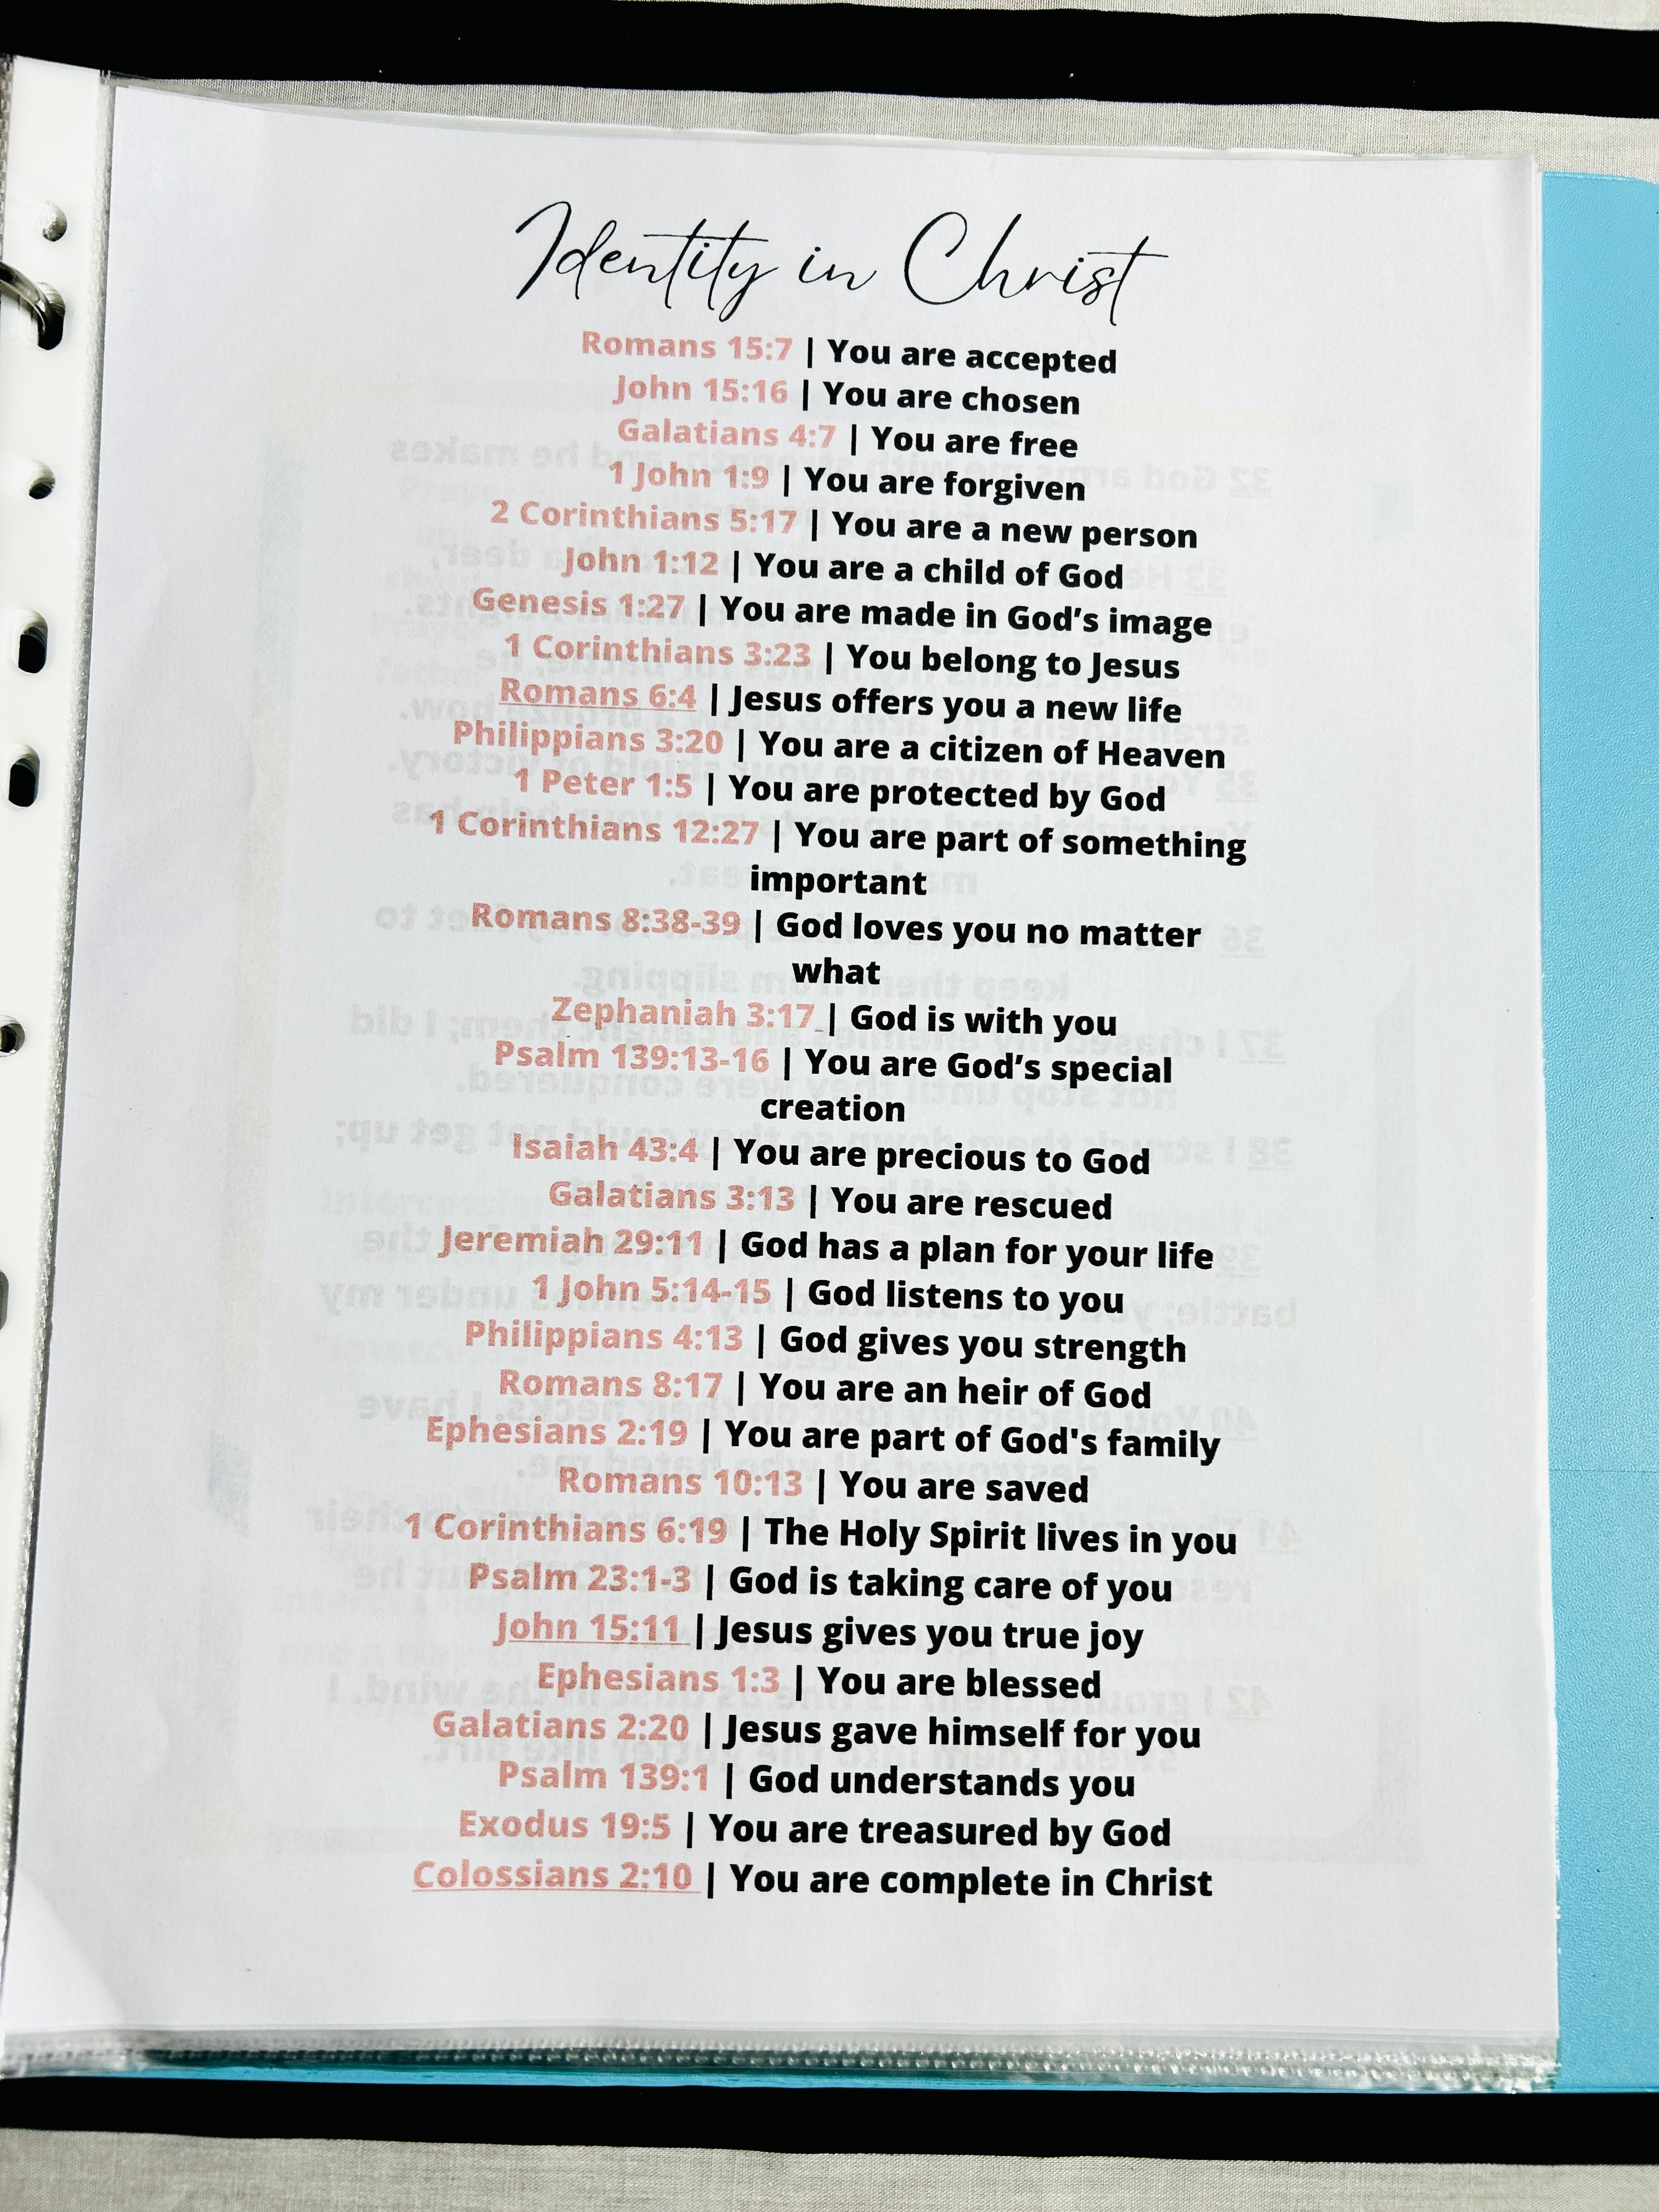 Identity in Christ
Romans 15:7 | You are accepted
John 15:16 | You are chosen
Galatians 4:7 | You are free
1 John 1:9 | You are forgiven
2 Corinthians 5:17 | You are a new person
John 1:12 | You are a child of God
Genesis 1:27 | You are made in God’s image
1 Corinthians 3:23 | You belong to Jesus
Romans 6:4 | Jesus offers you a new life
Philippians 3:20 | You are a citizen of Heaven
1 Peter 1:5 | You are protected by God
1 Corinthians 12:27 | You are part of something
important
Romans 8:38-39 | God loves you no matter
what
Zephaniah 3:17 | God is with you
Psalm 139:13-16 | You are God’s special
creation
Isaiah 43:4 | You are precious to God
Galatians 3:13 | You are rescued
Jeremiah 29:11 | God has a plan for your life
1 John 5:14-15 | God listens to you
Philippians 4:13 | God gives you strength
Romans 8:17 | You are an heir of God
Ephesians 2:19 | You are part of God's family
Romans 10:13 | You are saved
1 Corinthians 6:19 | The Holy Spirit lives in you
Psalm 23:1-3 | God is taking care of you
John 15:11 | Jesus gives you true joy
Ephesians 1:3 | You are blessed
Galatians 2:20 | Jesus gave himself for you
Psalm 139:1 | God understands you
Exodus 19:5 | You are treasured by God
Colossians 2:10 | You are complete in Christ